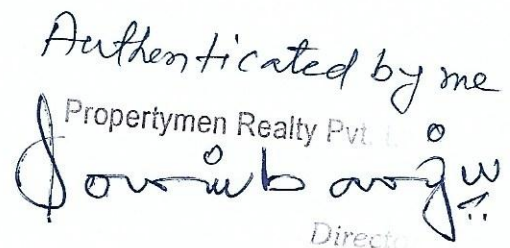 Authenticated by me
Propertymen Realty Pvt.
Direct